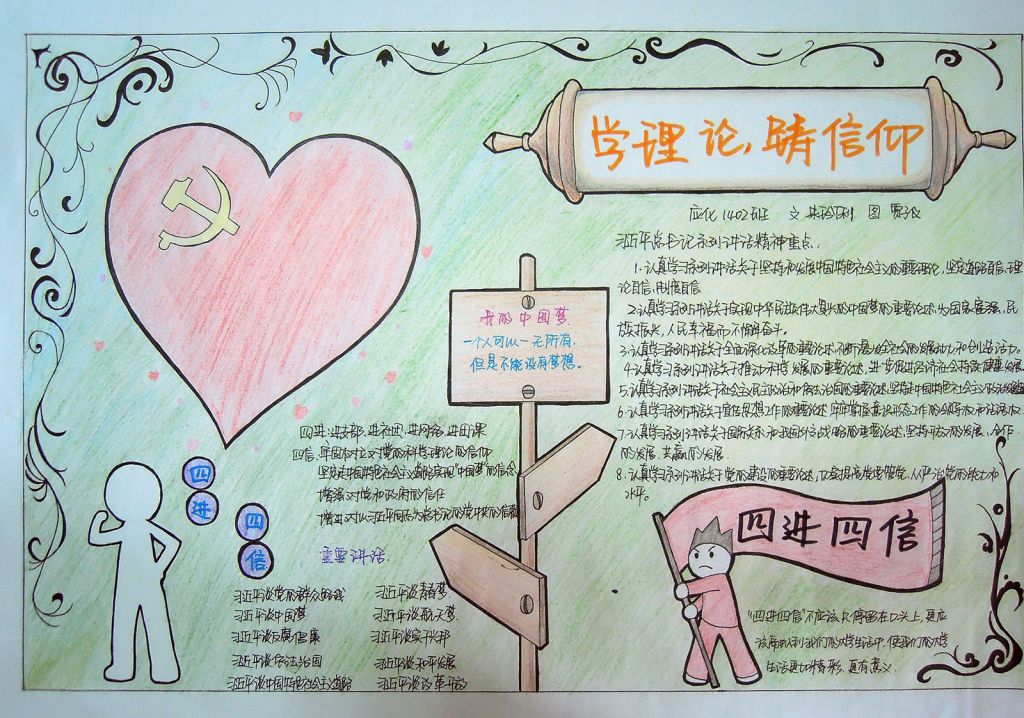 学理论,铸信仰
应化1402班 文 图
习近平总书记系列讲话精神重点:
1.认真学习系列讲话关于坚持和发展中国特色社会主义的重要理论,坚定道路自信,理
论自信,制度自信
2.认真学习系列讲话关于实现中华民族伟大复兴的中国梦的重要论述,为国家富强、民
族振兴,人民幸福而不懈奋斗。
3.认真学习系列讲话关于全面深化改革的重要论述,不断激发全社会的发展动力和创造活力。
4.认真学习系列讲话关于推动科学发展的重要论述,进一步促进经济社会持续健康发展
5.认真学习系列讲话关于社会主义民主政治和依法治国的重要论述,坚持中国特色社会主义政治
6.认真学习系列讲话关于宣传思想工作的重要论述,牢牢掌握意识形态工作的领导权和话语权
7.认真学习系列讲话关于国际关系和我国外交战略的重要论述,坚持开放的发展、合作
的发展、共赢的发展
8.认真学习系列讲话关于党的建设的重要论述,切实提高党要管党、从严治党的能力和
水平。
我的中国梦
一个人可以一无所有,
但是不能没有梦想。
四进:进支部、进社团、进网络、进团课
四信:牢固树立对党的科学理论的信仰
坚定走中国特色社会主义道路实现"中国梦"的信念
增强对党和政府的信任
增进对以习近平同志为总书记的党中央的信赖
四进
四信
重要讲话
习近平谈党的群众路线
习近平谈中国梦
习近平谈反腐倡廉
习近平谈依法治国
习近平谈中国特色社会主义道路
习近平谈青春梦
习近平谈航天梦
习近平谈实干兴邦
习近平谈和平发展
习近平谈改革开放
四进四信
"四进四信"不应该只停留在口头上,更应
该深入到我们的大学生活中,使我们的大学
生活更加精彩,更有意义.